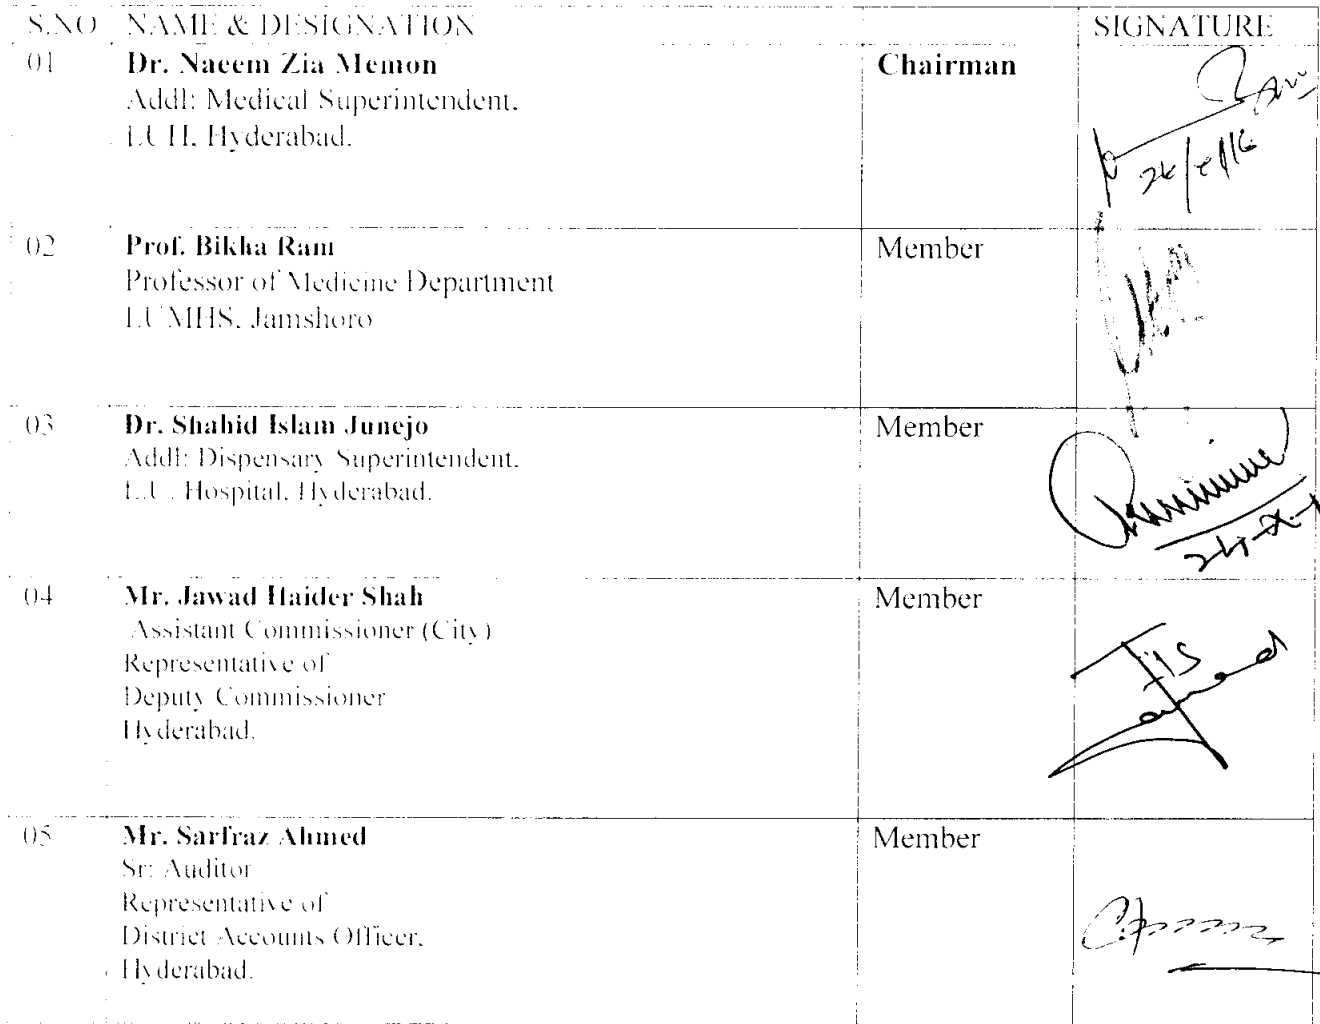 S.NO NAME & DESIGNATION SIGNATURE
01 Dr. Naeem Zia Memon Chairman
Addl: Medical Superintendent.
LUH, Hyderabad.
02 Prof. Bikha Ram Member
Professor of Medicine Department
LUMHS, Jamshoro
03 Dr. Shahid Islam Junejo Member
Addl: Dispensary Superintendent.
L.U. Hospital, Hyderabad.
04 Mr. Jawad Haider Shah Member
Assistant Commissioner (City)
Representative of
Deputy Commissioner
Hyderabad.
05 Mr. Sarfraz Ahmed Member
Sr: Auditor
Representative of
District Accounts Officer,
Hyderabad.